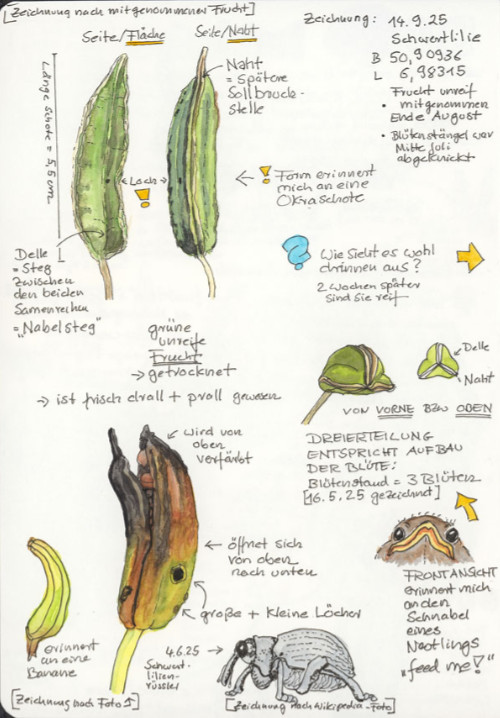 [Zeichnung nach mitgenommener Frucht]
Seite/Fläche
Seite/Naht
Zeichnung: 14.9.25
Schwertlilie
B 50,90936
L 6,98315
Frucht unreif
• mitgenommen
Ende August
• Blütenstängel war
Mitte Juli
abgeknickt
Naht
= spätere
Sollbruch-
stelle
Länge Schote = 5,5 cm
Loch
!
! Form erinnert
mich an eine
Okraschote
Delle
= Steg
zwischen
den beiden
Samenreihen
= "Nabelsteg"
? Wie sieht es wohl
drinnen aus?
2 Wochen später
sind sie reif
grüne
unreife
Frucht
→ getrocknet
→ ist frisch drall + prall gewesen
Delle
Naht
VON VORNE BZW OBEN
DREIERTEILUNG
ENTSPRICHT AUFBAU
DER BLÜTE:
Blütenstand = 3 Blüten
[16.5.25 gezeichnet]
wird von
oben
verfärbt
öffnet sich
von oben
nach unten
große + kleine Löcher
erinnert
an eine
Banane
4.6.25 →
Schwert-
lilien-
rüssler
FRONTANSICHT
erinnert mich
an den
Schnabel
eines
Nestlings
"feed me!"
[Zeichnung nach Foto ↑]
[Zeichnung nach Wikipedia-Foto]